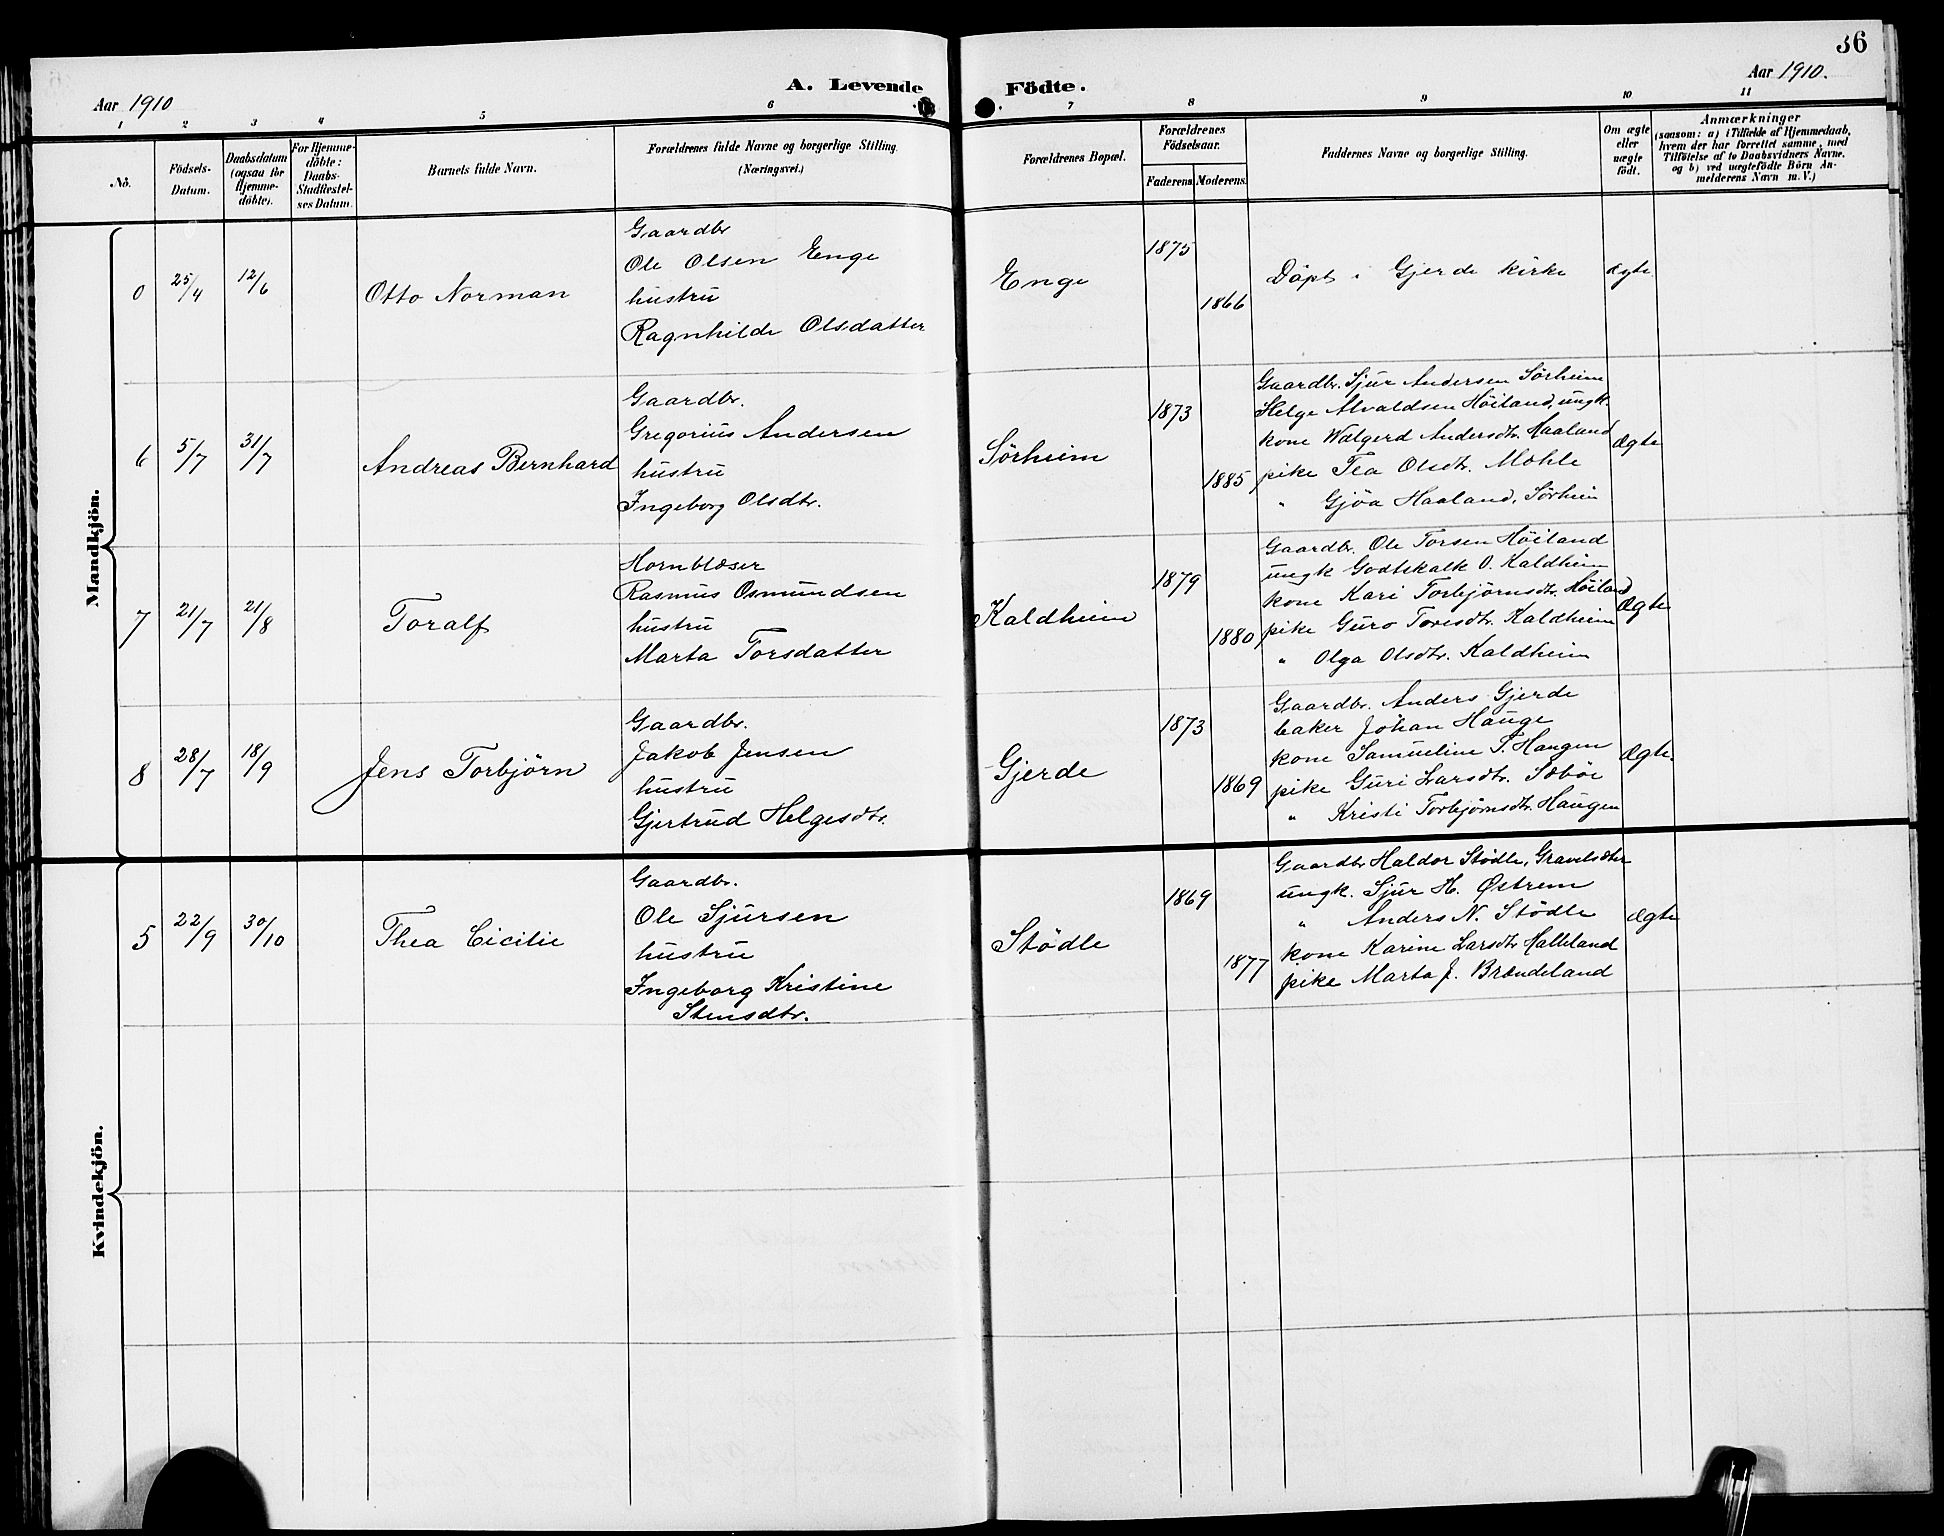 36
Aar 1910
A. Levende Födte.
Aar 1910.
1 2 3 4 5 6 7 8 9 10 11
No.
Födsels-
Datum.
Daabsdatum
(ogsaa for
Hjemme-
döbte).
For Hjemme-
döbte:
Daabs-
Stadfæstel-
ses Datum.
Barnets fulde Navn.
Forældrenes fulde Navne og borgerlige Stilling.
(Næringsvei.)
Forældrenes Bopæl.
Forældrenes
Födselsaar.
Faderens. Moderens.
Faddernes Navne og borgerlige Stilling.
Om ægte
eller
uægte
födt.
Anmærkninger
(saasom: a) i Tilfælde af Hjemmedaab,
hvem der har forrettet samme, med
Tilföielse af to Daabsvidners Navne,
og b) ved uægtefödte Börn An-
melderens Navn m. V.)
Mandkjön.
0 25/4 12/6
Otto Norman
Gaardbr
Ole Olsen Enge
hustru
Ragnhilde Olsdatter
Enge
1875
1866
Döpt i Gjerde kirke
Ægte.
6 5/7 31/7
Andreas Bernhard
Gaardbr.
Gregorius Andersen
hustru
Ingeborg Olsdtr.
Sörheim
1873
1885
Gaardbr. Sjur Andersen Sörheim
Helge Alvaldsen Höiland, ungk.
kone Walgerd Andersdtr. Haaland
pike Tea Olsdtr. Mæhle
" Gjöa Haaland, Sörheim
Ægte
7 21/7 21/8
Toralf
Hornblæser
Rasmus Osmundsen
hustru
Marta Torsdatter
Kaldheim
1879
1880
Gaardbr. Ole Torsen Höiland
ungk Godtskalk O. Kaldheim
kone Kari Torbjörnsdtr. Höiland
pike Guro Toresdtr. Kaldheim
" Olga Olsdtr. Kaldheim
Ægte
8 28/7 18/9
Jens Torbjörn
Gaardbr.
Jakob Jensen
hustru
Gjertrud Helgesdtr.
Gjerde
1873
1869
Gaardbr. Anders Gjerde
baker Johan Hauge
kone Samueline T. Haugen
pike Guri Larsdtr. Sæböe
" Kristi Torbjörnsdtr. Haugen
Ægte.
Kvindekjön.
5 22/9 30/10
Thea Cicilie
Gaardbr.
Ole Sjursen
hustru
Ingeborg Kristine
Stensdtr.
Stödle
1869
1877
Gaardbr Haldor Stödle, Gravelsæter
ungk. Sjur H. Østrem
" Anders N. Stödle
kone Karine Larsdtr Halleland
pike Marta J. Brændeland
Ægte